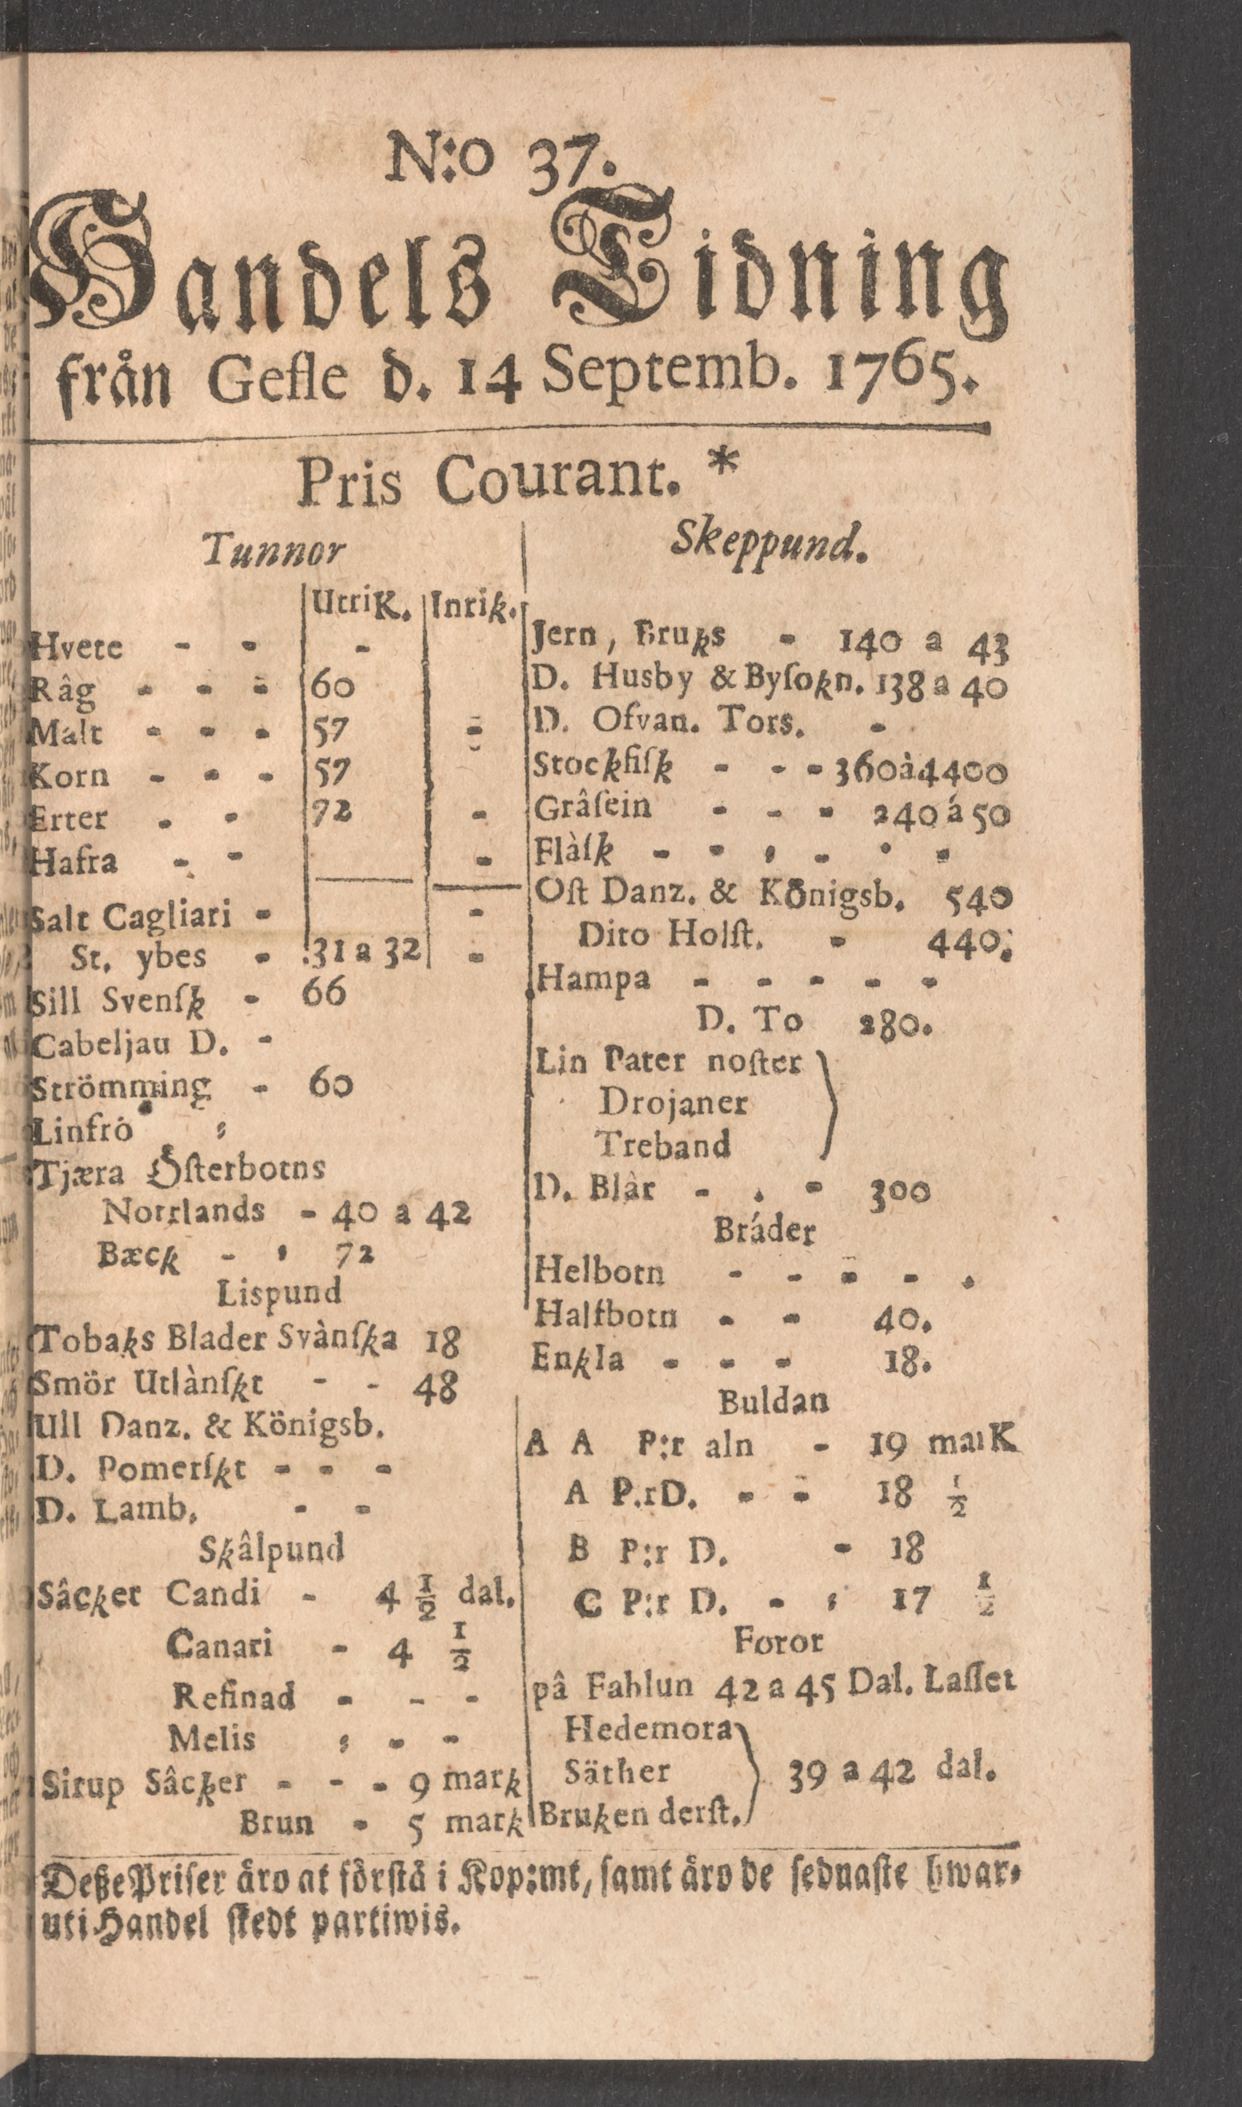 N:o 37.
Handels Tidning
från Gefle d. 14 Septemb. 1765.
Pris Courant. *
Tunnor
UtriK. Inrik.
Hvete - - -
Râg - - - 60
Malt - - - 57 -
Korn - - - 57
Erter - - 72 -
Hafra - - -
Salt Cagliari - -
St. ybes - 31 a 32 -
Sill Svenſk - 66
Cabeljau D. -
Strömming - 60
Linfrö
Tjæra Öſterbotns
Norrlands - 40 a 42
Bæck - 72
Lispund
Tobaks Blader Svànſka 18
Smör Utlànſkt - - 48
Ull Danz. & Königsb.
D. Pomerſkt - - -
D. Lamb. - -
Skâlpund
Sâcker Candi - 4 1/2 dal.
Canari - 4 1/2
Refinad - - -
Melis - -
Sirup Sâcker - - - 9 mark
Brun - 5 mark
Skeppund.
Jern, Bruks - 140 a 43
D. Husby & Byſokn. 138 a 40
D. Ofvan. Tors. -
Stockfiſk - - - 360à4400
Grâſein - - - 240 á 50
Flàſk - - - -
Oſt Danz. & Königsb. 540
Dito Holſt. - 440.
Hampa - - - - -
D. To 280.
Lin Pater noſter
Drojaner
Treband
D. Blâr - . - 300
Bráder
Helbotn - - - - .
Halfbotn - - 40.
Enkla - - - 18.
Buldan
A A P:r aln - 19 marK
A P.rD. - - 18 1/2
B P:r D. - 18
C P:r D. - 17 1/2
Foror
pâ Fahlun 42 a 45 Dal. Laſſet
Hedemora
Säther 39 a 42 dal.
Bruken derſt.
Deße Priſer äro at förſtå i Kop:mt, ſamt äro de ſednaſte hwar-
uti Handel ſkedt partiwis.